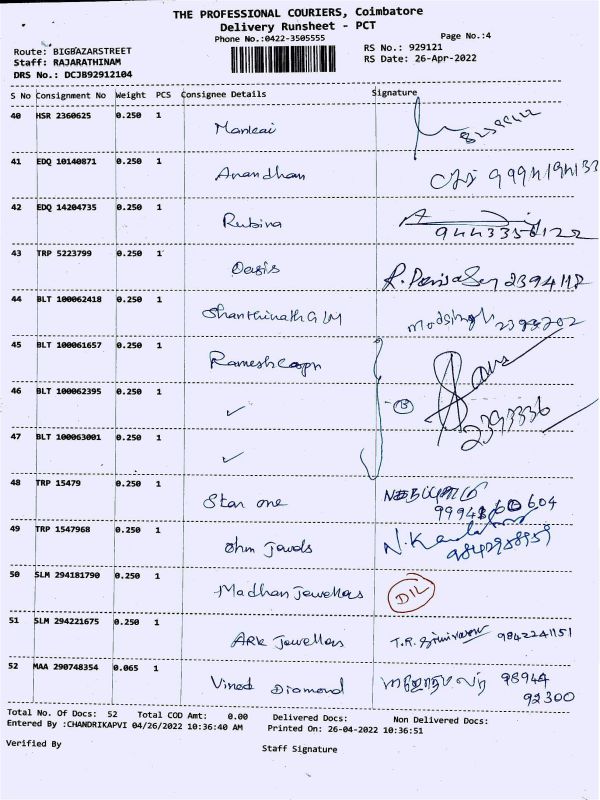 THE PROFESSIONAL COURIERS, Coimbatore
Delivery Runsheet - PCT
Phone No.:0422-3505555
Page No.:4
Route: BIGBAZARSTREET
RS No.: 929121
Staff: RAJARATHINAM
RS Date: 26-Apr-2022
DRS No.: DCJB92912104
S No Consignment No Weight PCS Consignee Details Signature
40 HSR 2360625 0.250 1
41 EDQ 10140871 0.250 1 Anandham
42 EDQ 14204735 0.250 1 Rubina
43 TRP 5223799 0.250 1 Oasis
44 BLT 100062418 0.250 1 Shanthinath G/M
45 BLT 100061657 0.250 1
46 BLT 100062395 0.250 1 ✓
2393336
47 BLT 100063001 0.250 1 ✓
48 TRP 15479 0.250 1 Star one
49 TRP 1547968 0.250 1 Ohm Jewels
50 SLM 294181790 0.250 1 Madhan Jewellers DIL
51 SLM 294221675 0.250 1 ARK Jewellers T.R. Srinivasan 9842241151
52 MAA 290748354 0.065 1 Vined Diamond 98944
92300
Total No. Of Docs: 52 Total COD Amt: 0.00 Delivered Docs: Non Delivered Docs:
Entered By :CHANDRIKAPVI 04/26/2022 10:36:40 AM Printed On: 26-04-2022 10:36:51
Verified By
Staff Signature